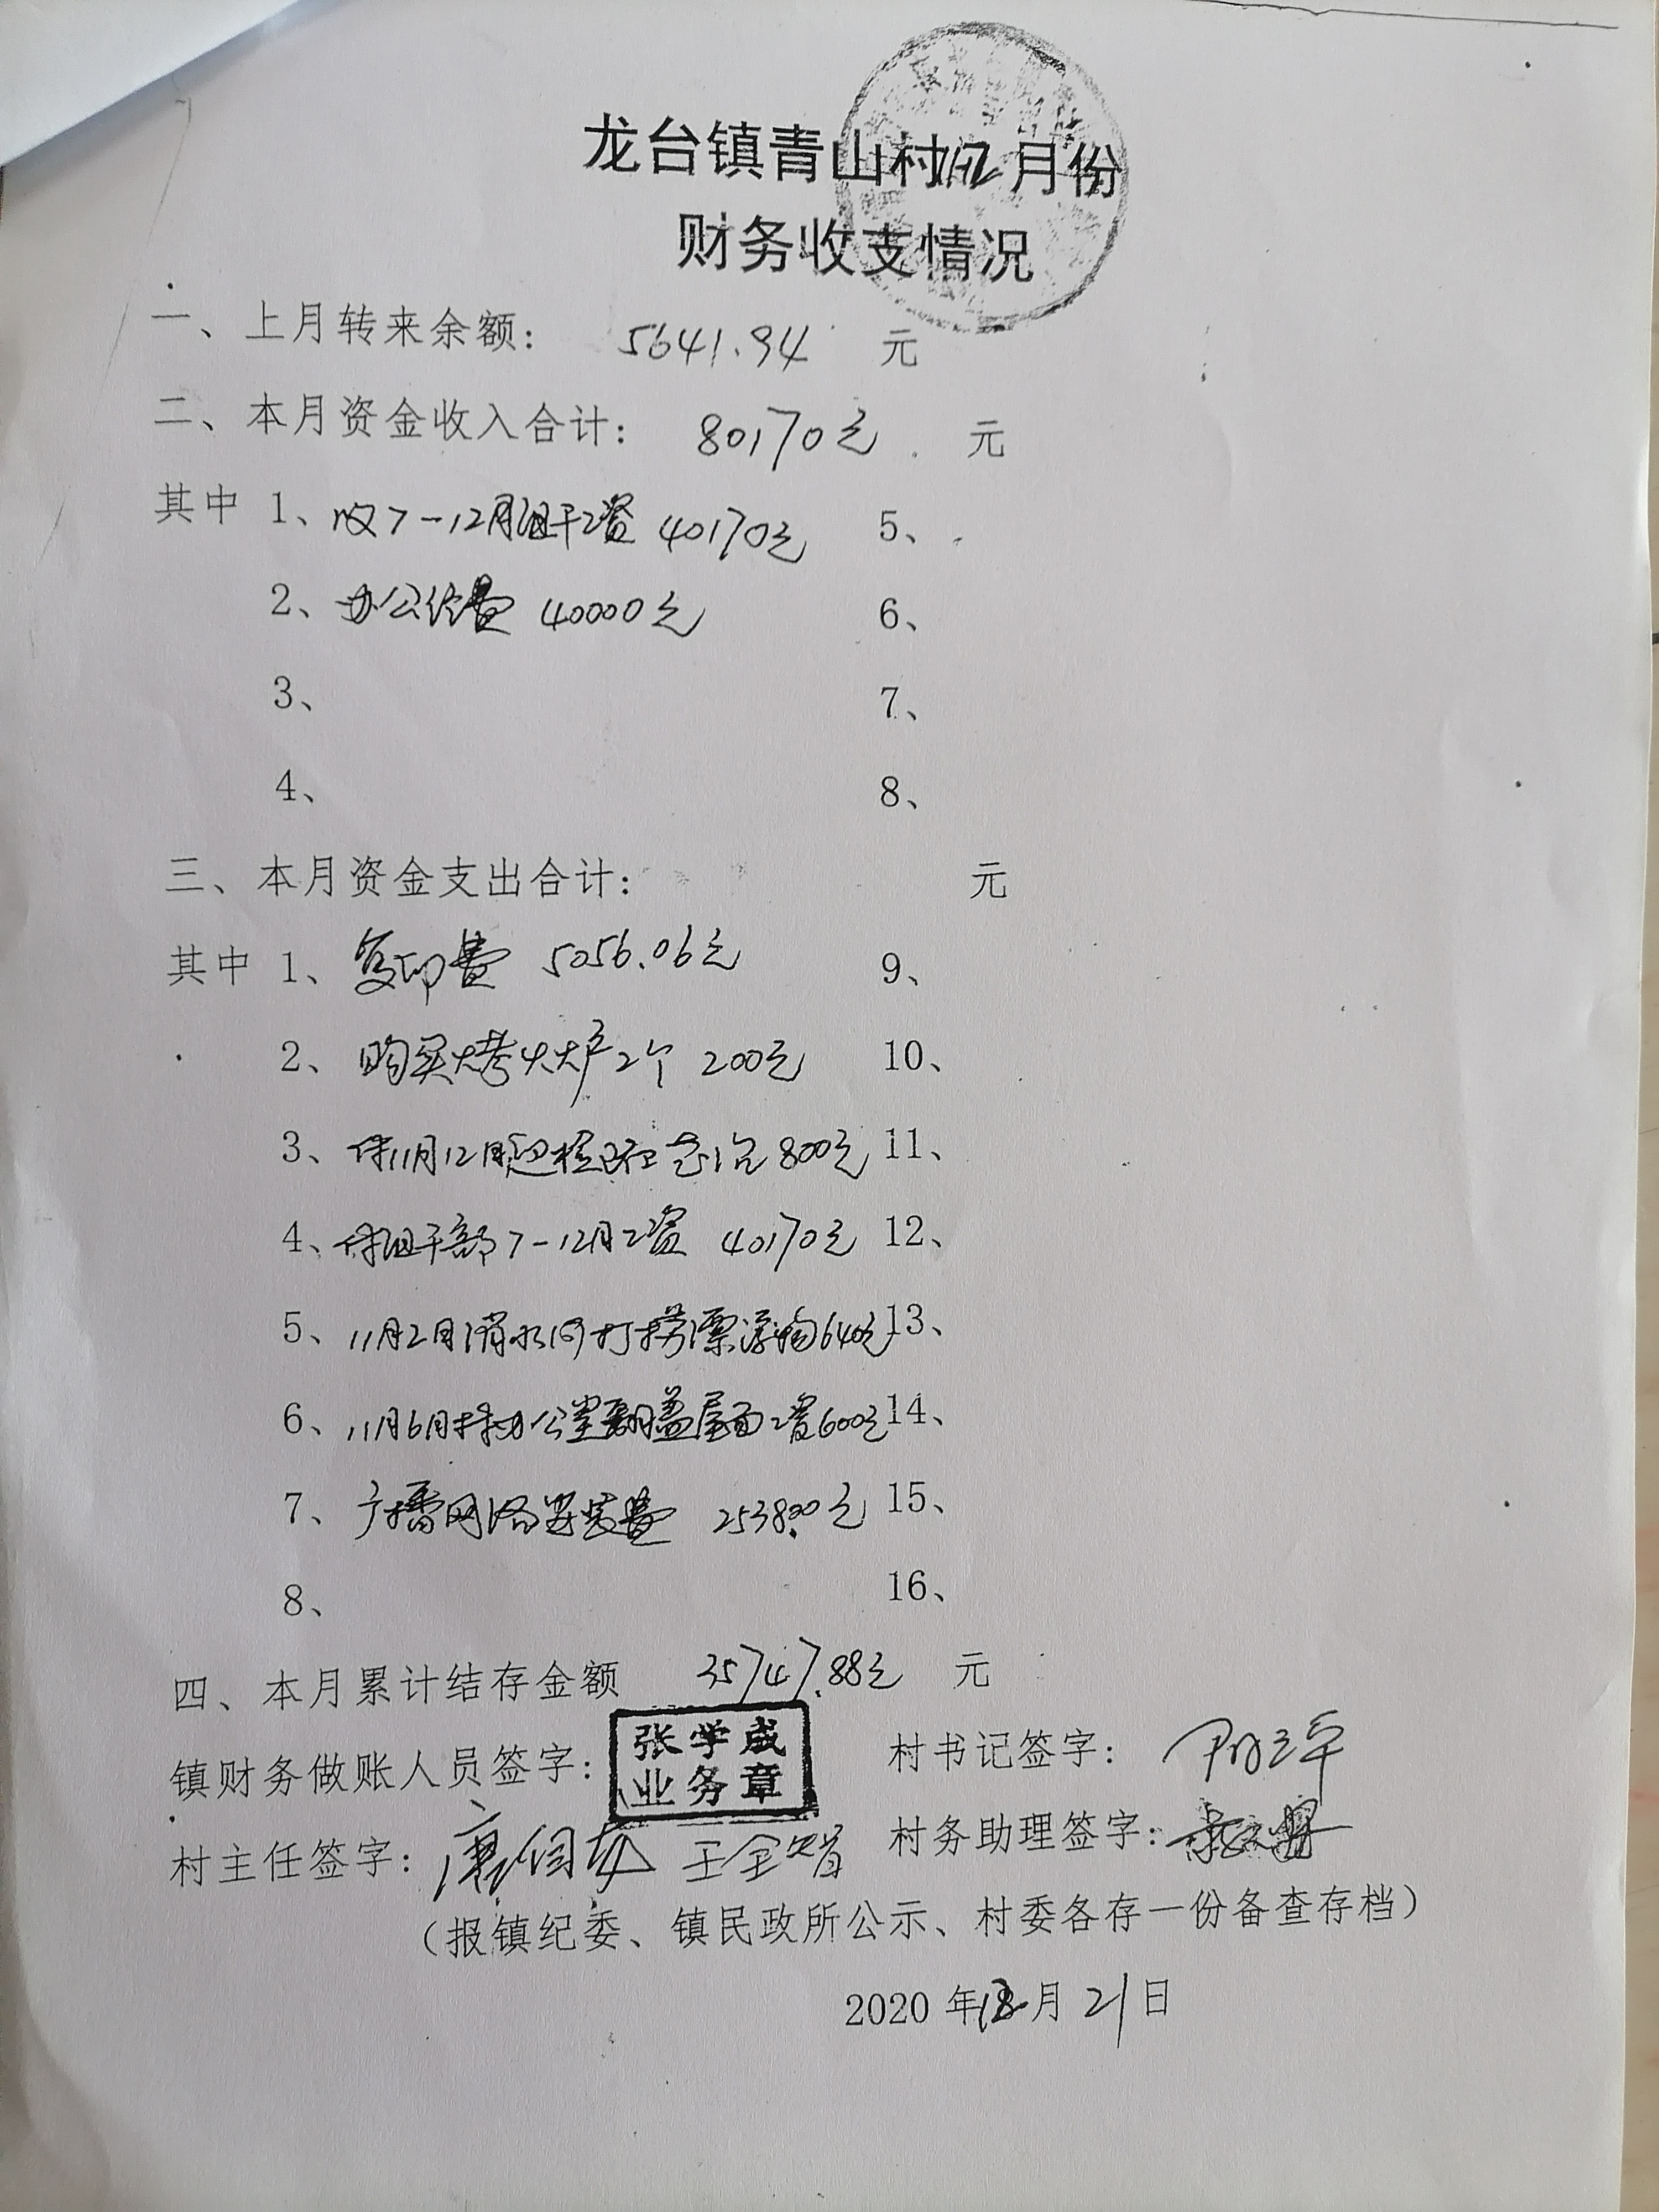 龙台镇青山村12月份
财务收支情况
一、上月转来余额： 5641.94 元
二、本月资金收入合计： 80170元 元
其中 1、收7-12月组干工资 40170元 5、
2、办公经费 40000元 6、
3、 7、
4、 8、
三、本月资金支出合计： 元
其中 1、复印费 5056.06元 9、
2、购买烤火炉2个 200元 10、
3、付11月12月 800元 11、
4、付组干部7-12月工资 40170元 12、
5、11月2日清水河打捞漂浮物640元 13、
6、11月6日 办公室翻盖屋面工资600元 14、
7、广播网络安装费 2538.00元 15、
8、 16、
四、本月累计结存金额 35747.88元 元
镇财务做账人员签字： 张学成 村书记签字：
业务章
村主任签字： 王全智 村务助理签字：
（报镇纪委、镇民政所公示、村委各存一份备查存档）
2020年12月21日